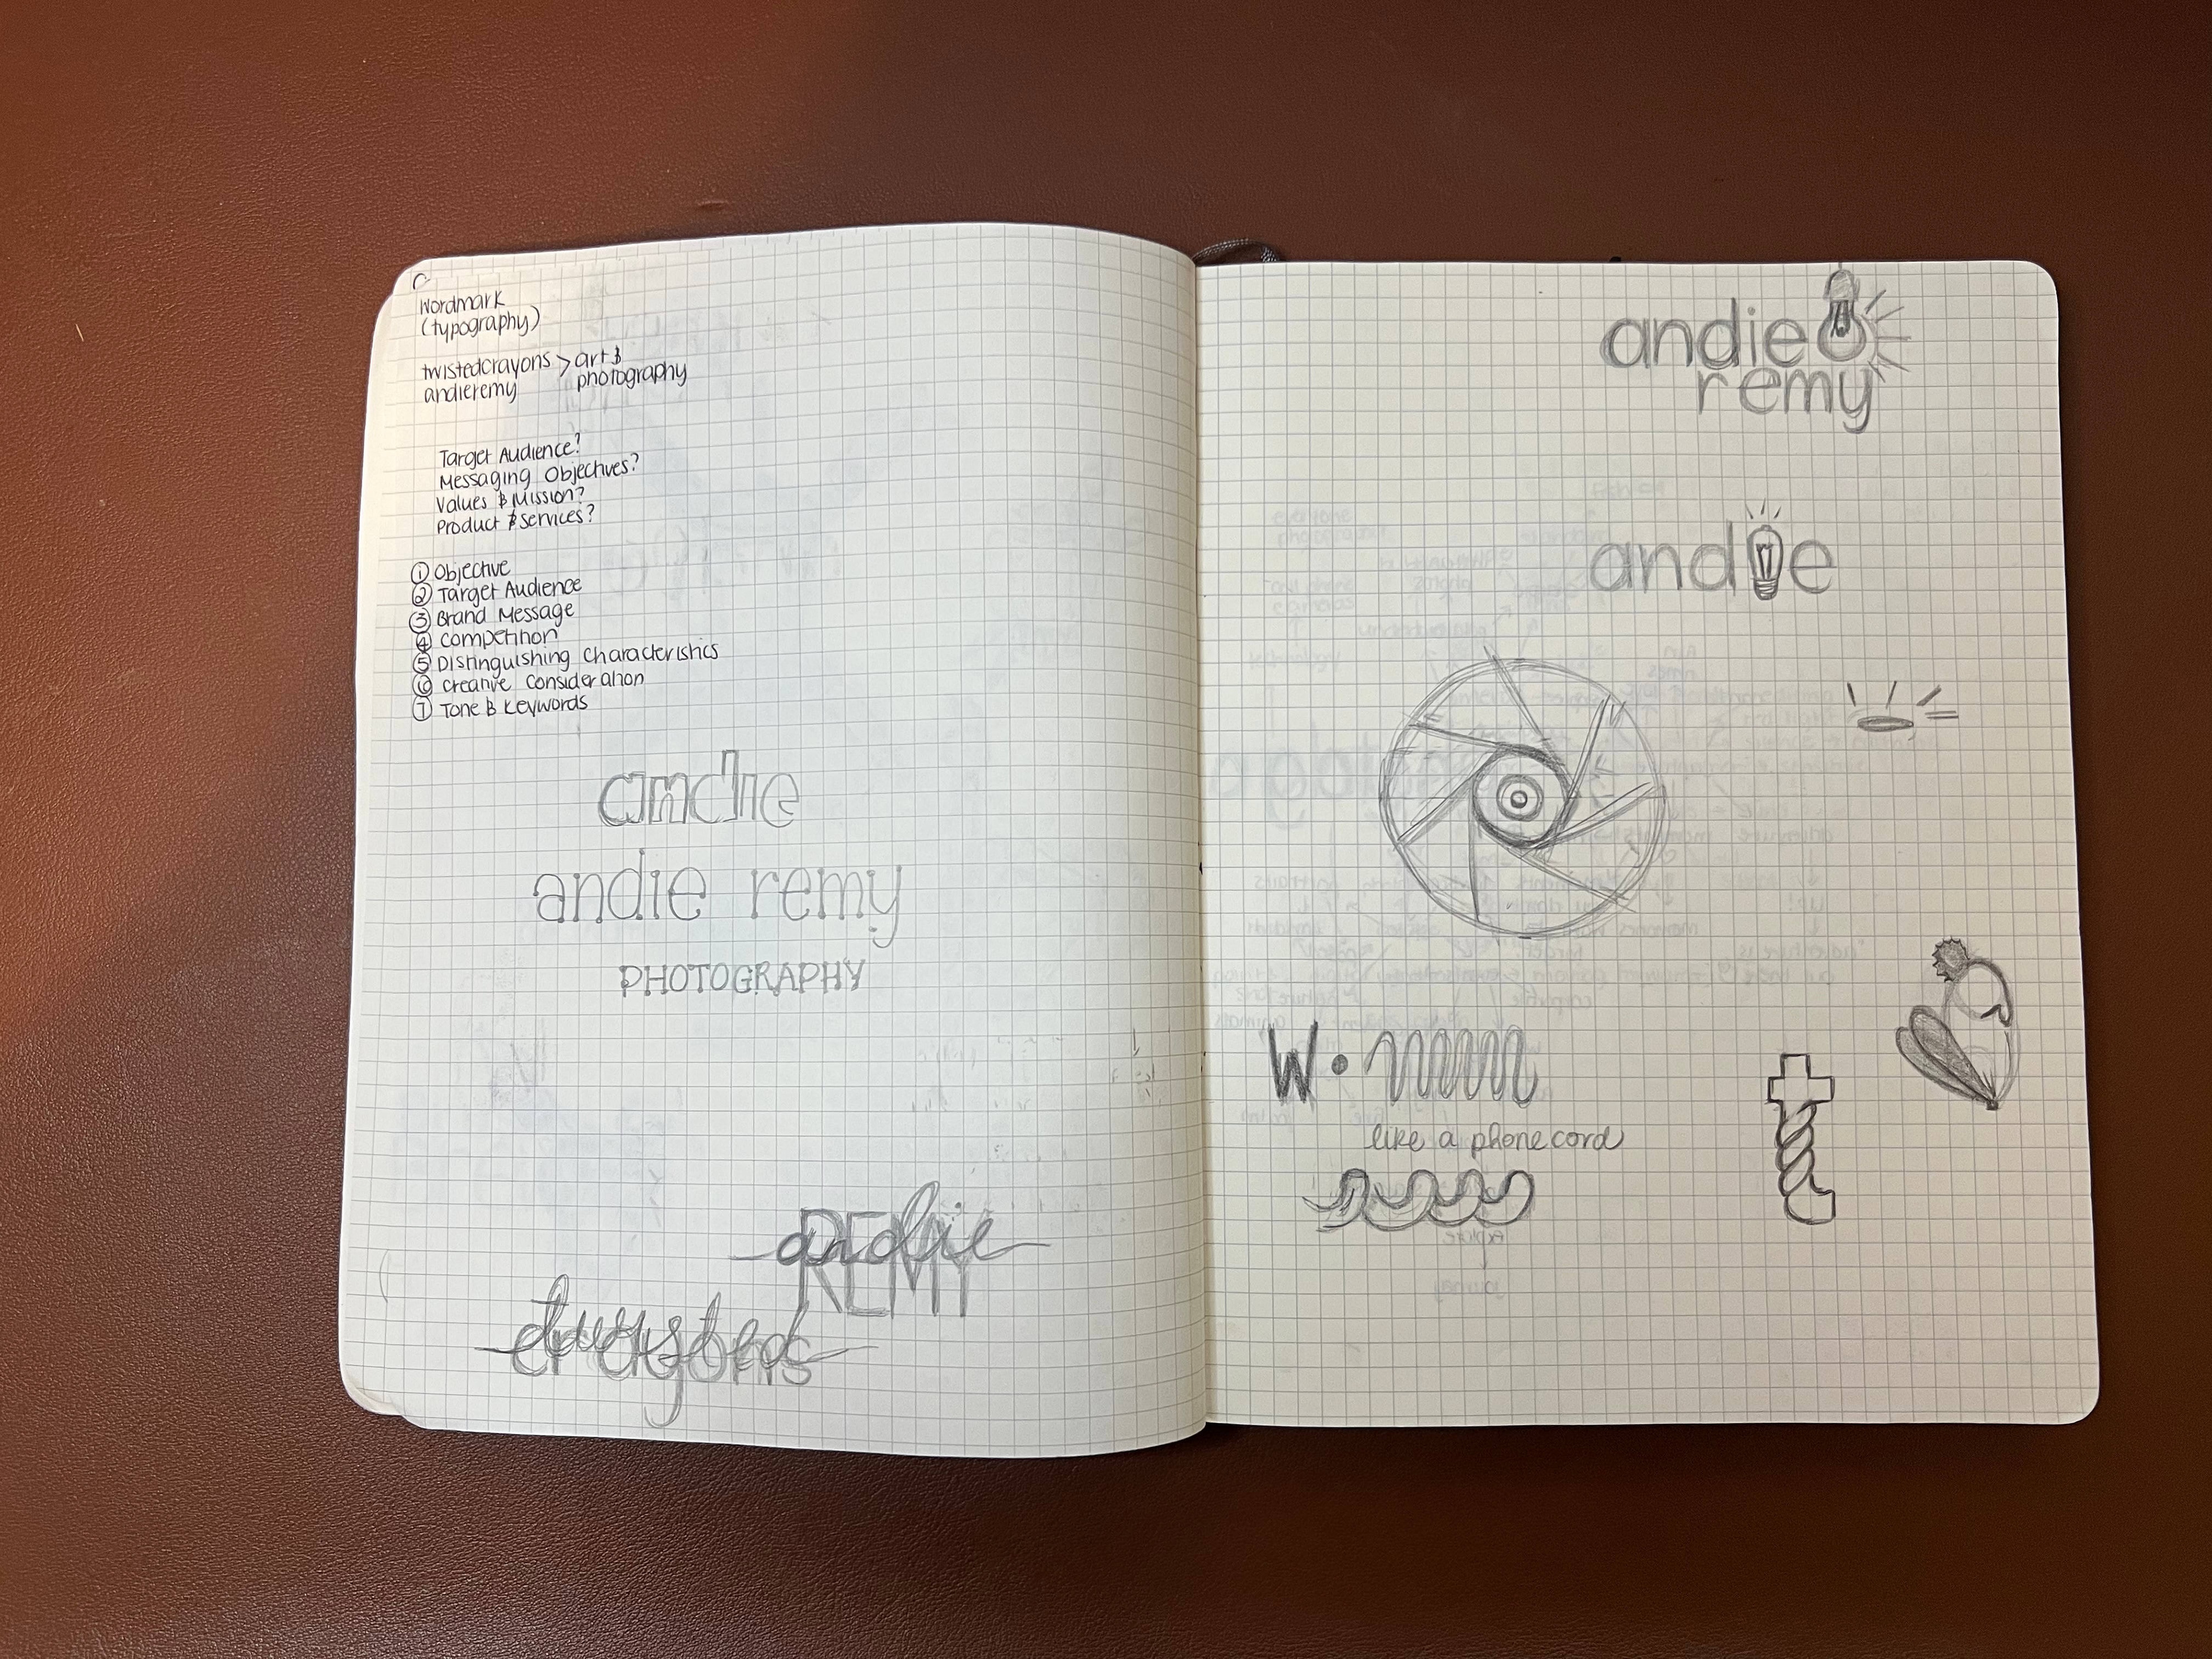 Wordmark
(typography)
twistedcrayons > art &
andieremy photography
Target Audience?
Messaging Objectives?
Values & Mission?
Product & Services?
① Objective
② Target Audience
③ Brand Message
④ Competition
⑤ Distinguishing Characteristics
⑥ Creative Consideration
⑦ Tone & Keywords
andie
andie remy
PHOTOGRAPHY
andie
REMY
twisted
andie
remy
andie
W
like a phone cord
t